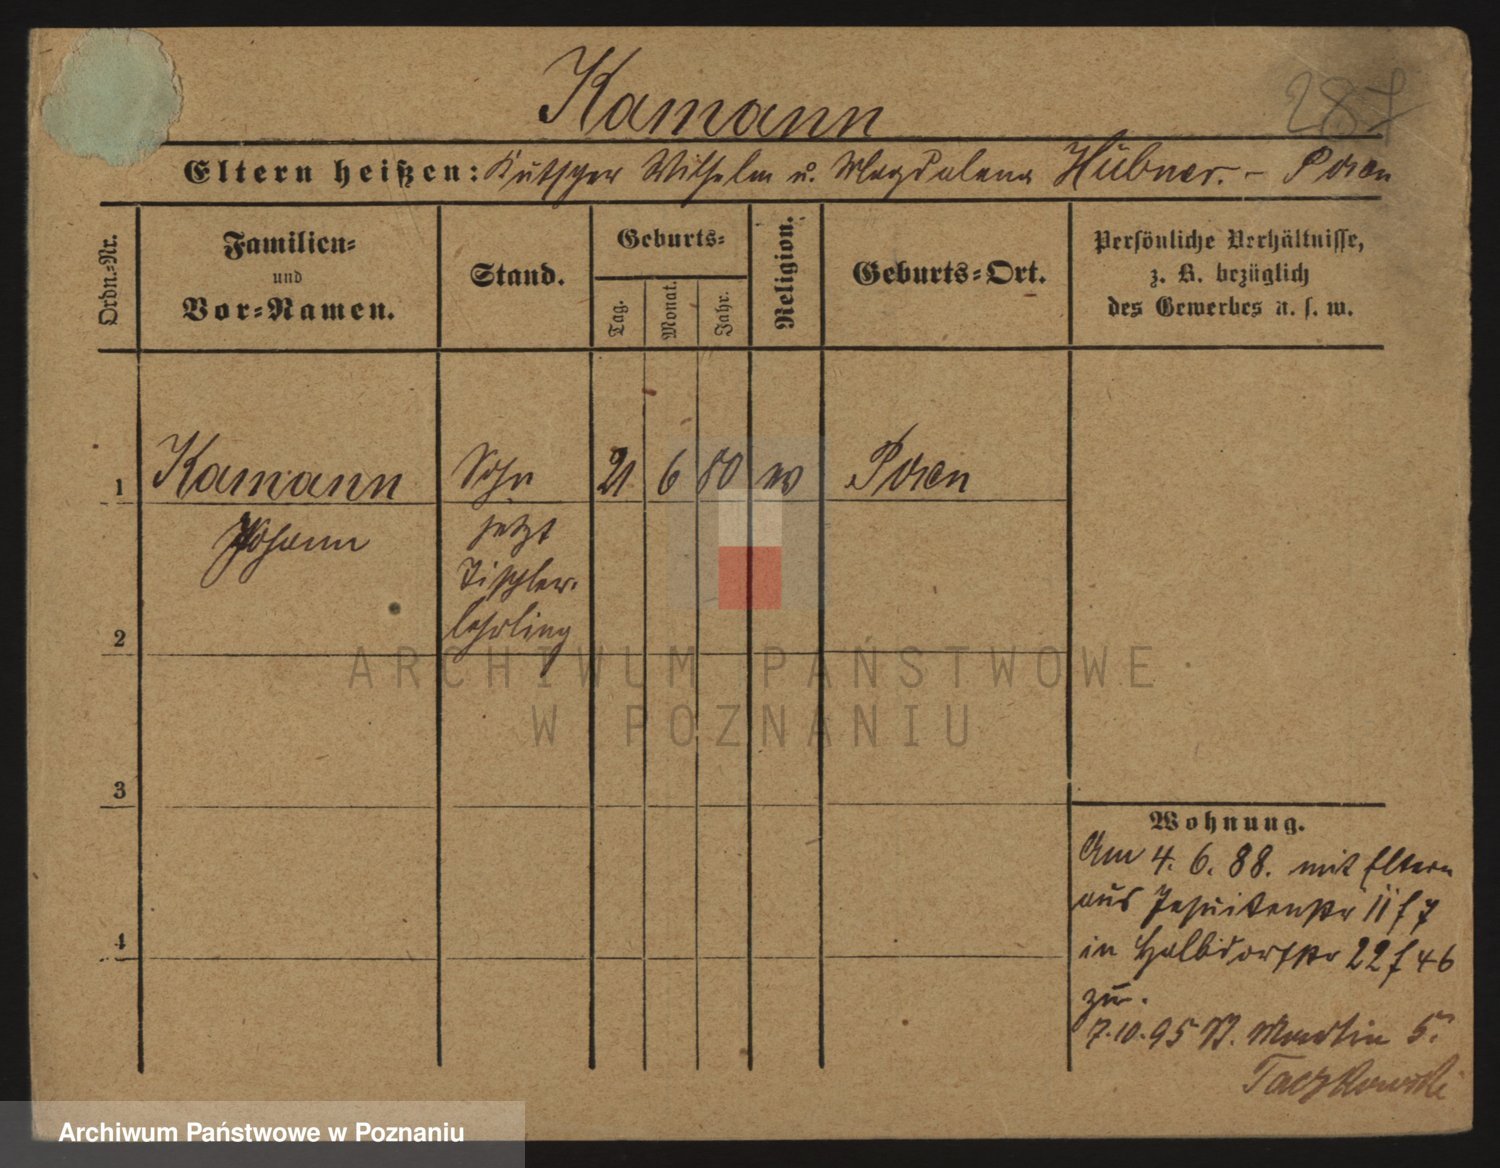 Kamann
287
Eltern heißen: Kutscher Wilhelm u. Magdalena Hübner. – Posen
Ordn.=Nr.
Familien=
und
Vor=Namen.
Stand.
Geburts=
Tag.
Monat.
Jahr.
Religion.
Geburts=Ort.
Persönliche Verhältnisse,
z. B. bezüglich
des Gewerbes u. s. w.
1 Kamann Sohn 21 6 80 Posen
Johann jetzt
Tischler-
2 lehrling
3
4
Wohnung.
Am 4. 6. 88. mit Eltern
aus Jesuitenstr 11 f 7
in Halbdorfstr 22 f 46
zu.
7.10.95 St. Martin 5.
Taczkowski
ARCHIWUM PAŃSTWOWE
W POZNANIU
Archiwum Państwowe w Poznaniu